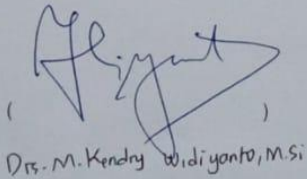 (                    )
Drs. M. Kendry Widiyanto, M.Si